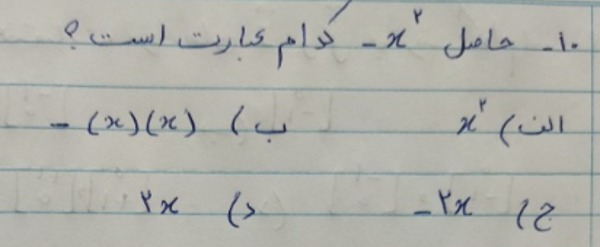 ۱۰- حاصل -x² کدام عبارت است؟
الف) x² ب) -(x)(x)
ج) -۲x د) ۲x